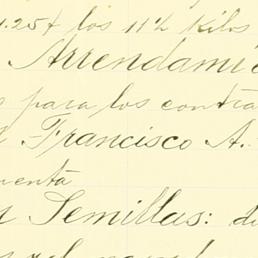 1.25¢ los 11½ Kilos
Arrendami
para los contra
Francisco A.
uenta
Semillas: d